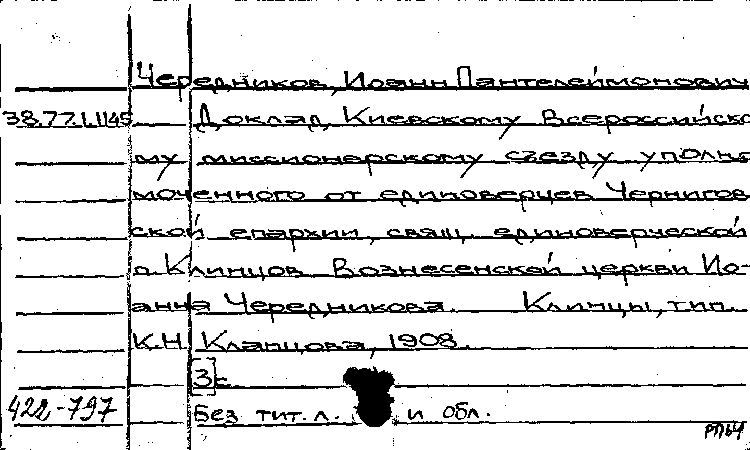 Чередников, Иоанн Пантелеймонович
38.77.1.1145 Доклад Киевскому Всероссийско
му миссионерскому съезду уполно
моченного от единоверцев Чернигов
ской епархии, свящ. единоверческой
п. Клинцов Вознесенской церкви Ио-
анна Чередникова. Клинцы, тип.
К.Н. Клапцова, 1908.
[3] с
422-797 Без тит. л. и обл.